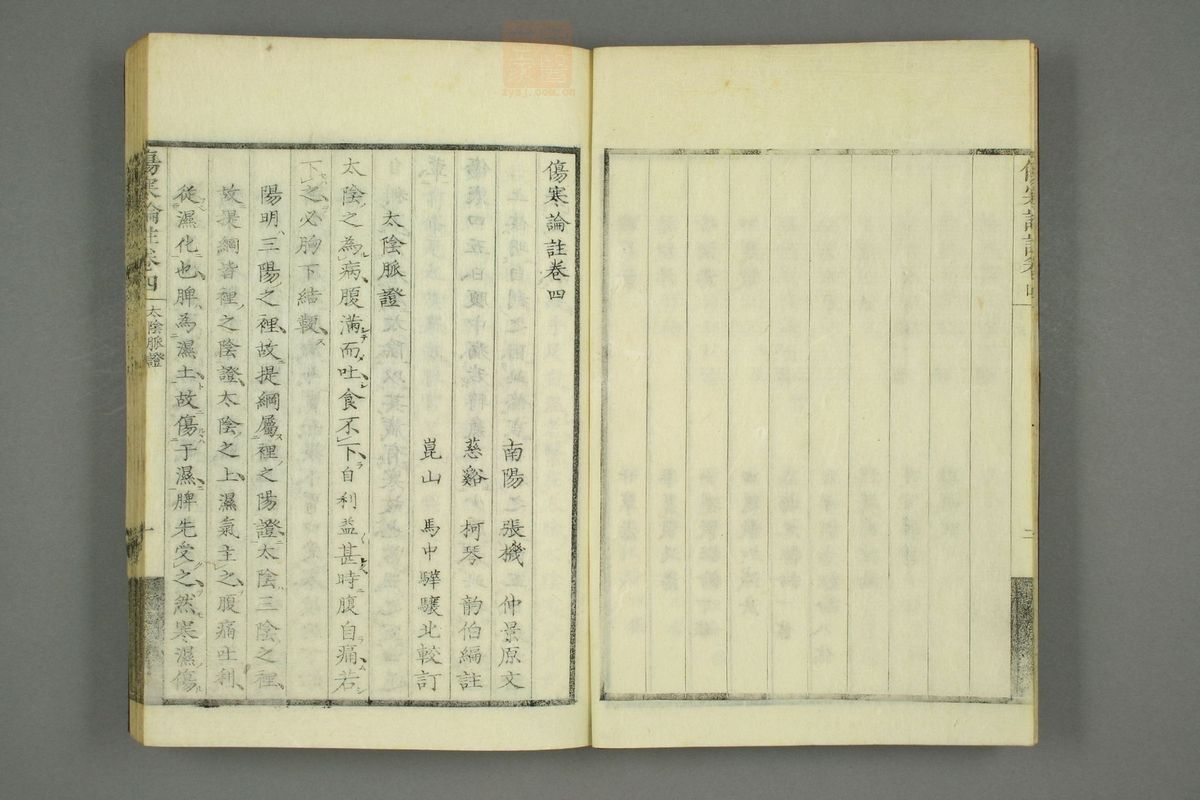 傷寒論註卷四
南陽 張機 仲景原文
慈谿 柯琴 韵伯編註
崑山 馬中驊驤北較訂
太陰脈證
太陰之為病腹滿而吐食不下自利益甚時腹自痛若
下之必胸下結鞕
陽明三陽之裡故提綱屬裡之陽證太陰三陰之裡
故提綱皆裡之陰證太陰之上濕氣主之腹痛吐利
從濕化也脾為濕土故傷于濕脾先受之然寒濕傷
傷寒論註卷四
太陰脈證
一
zysj.com.cn